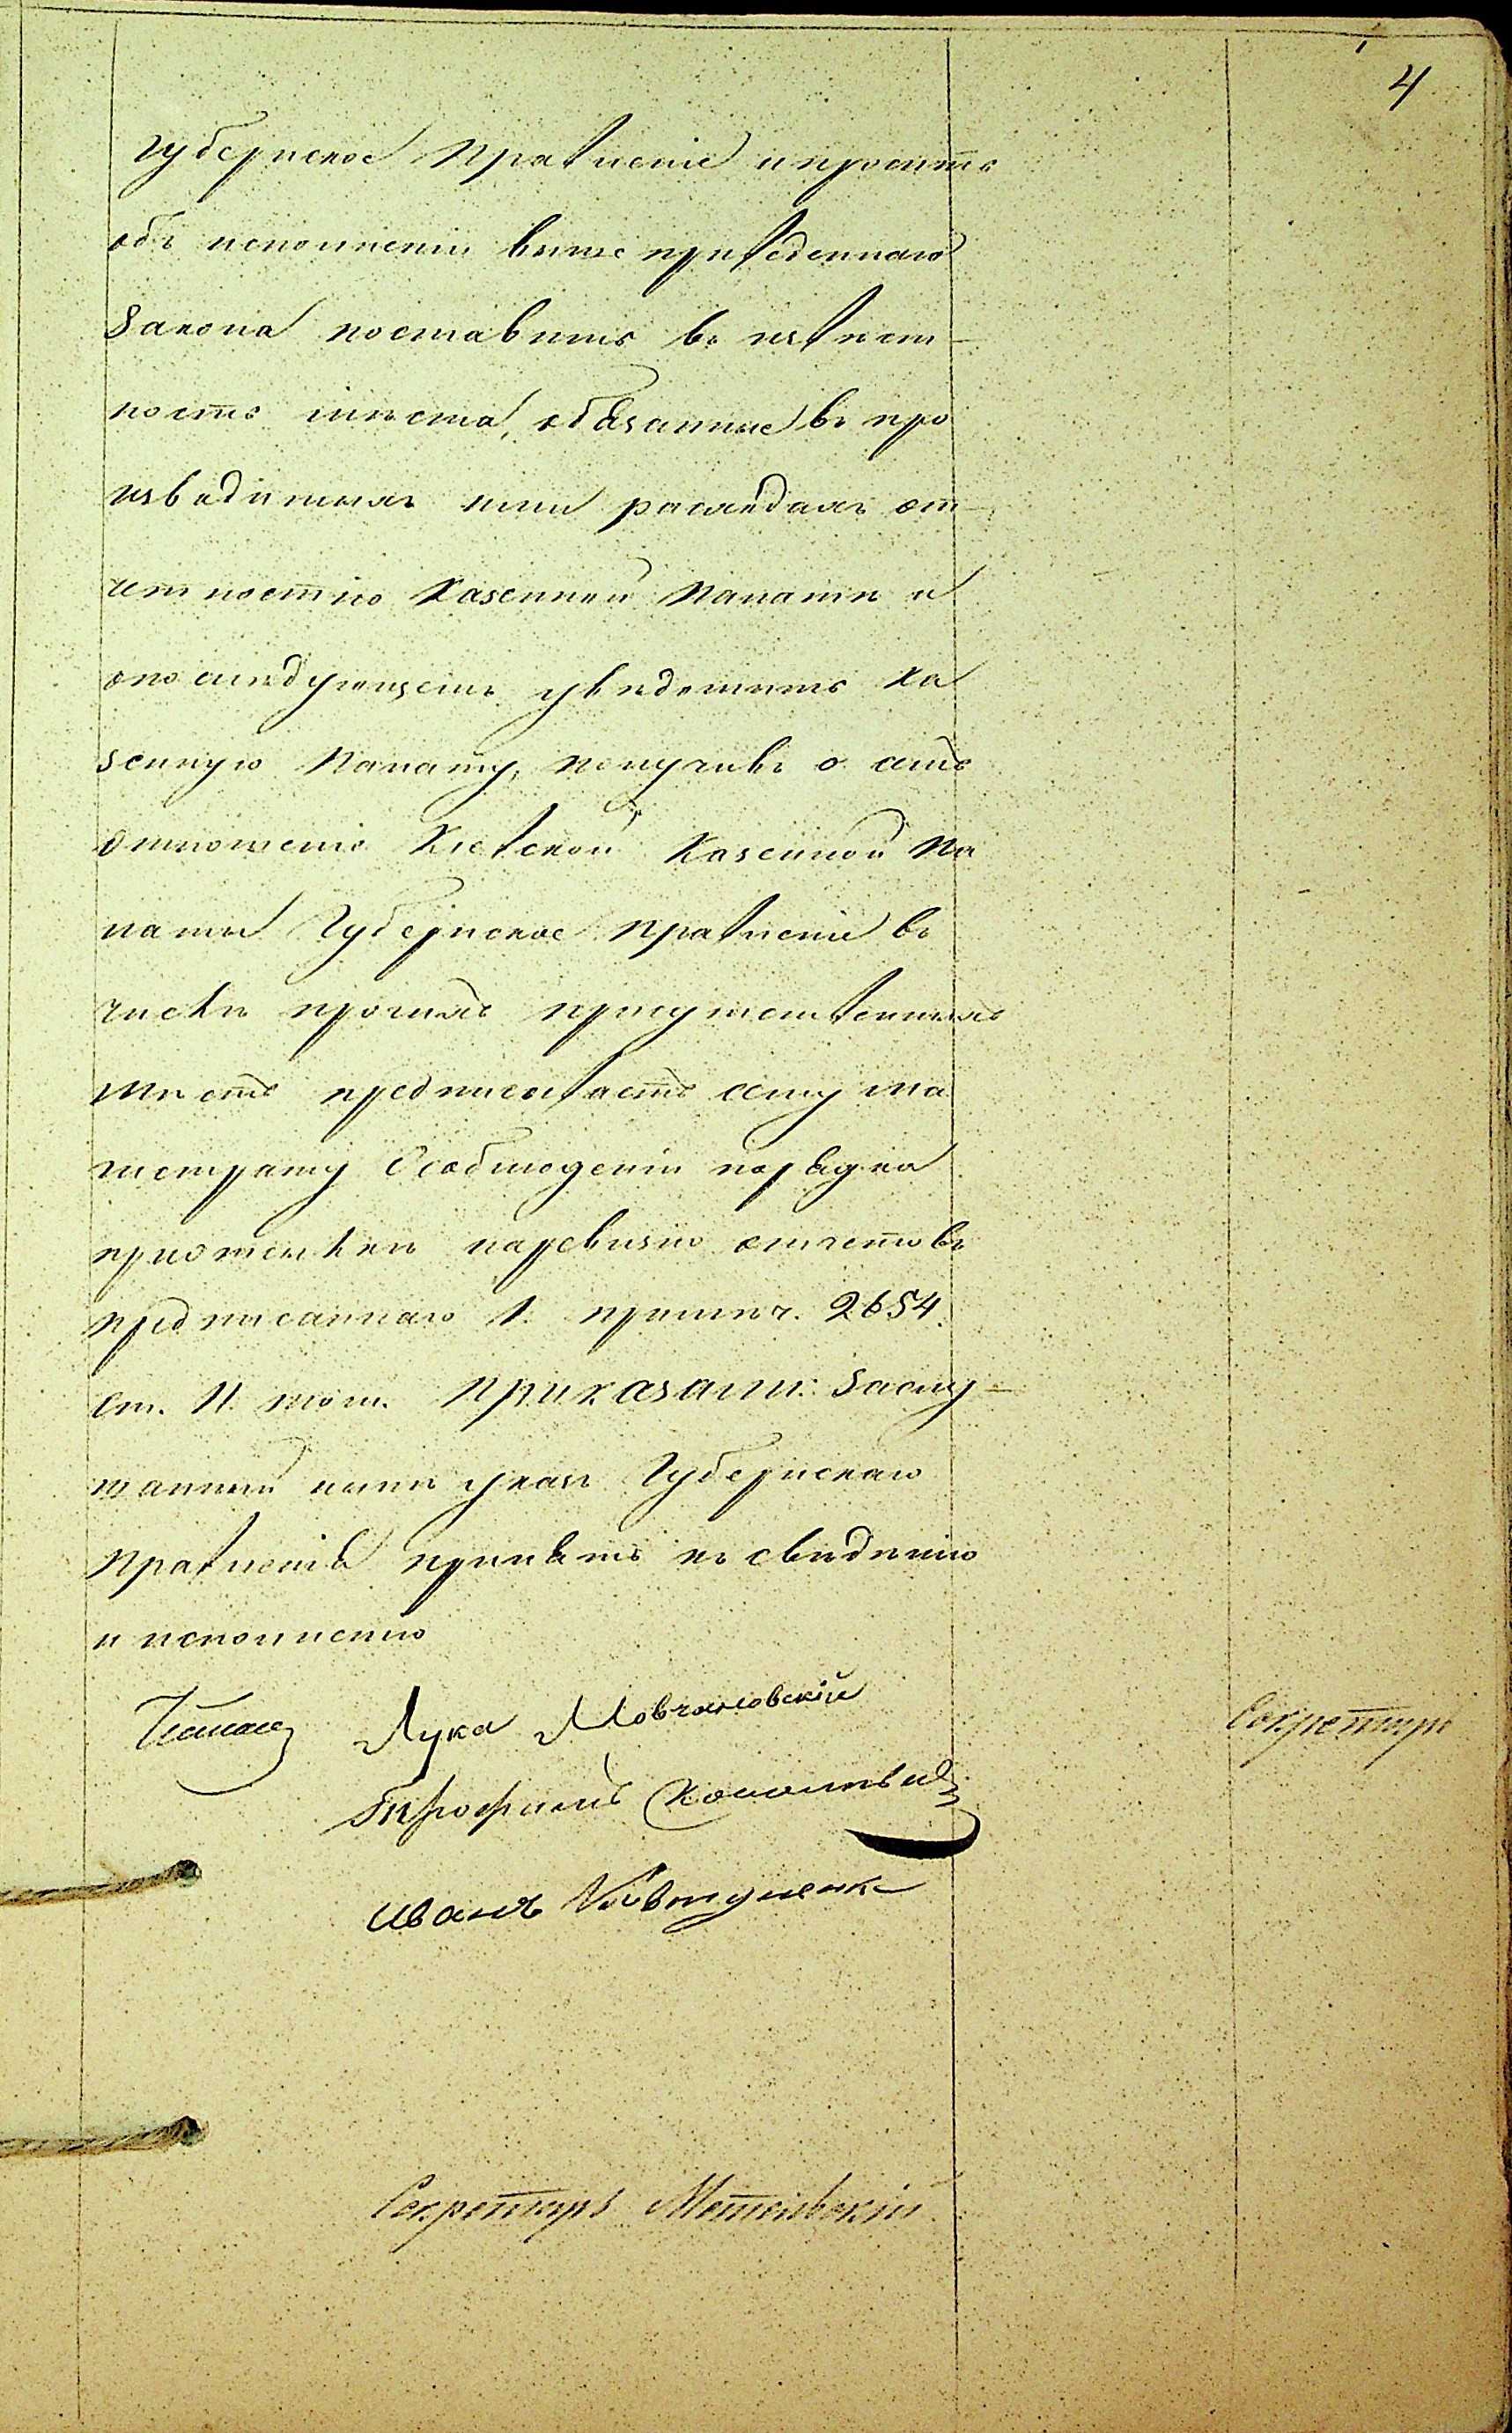 4
Губернское Правленіе и просить
объ исполненіи выше приведеннаго
Закона поставить въ извѣст-
ность мѣста, обязанные въ про
изводимыхъ ими расходахъ от-
четностію Казенной Палатѣ и
опослѣдующемъ увѣдомить Ка
зенную Палату, получивъ о семъ
отношеніе Кіевской Казенной Па
латы Губернское Правленіе въ
числѣ прочихъ присутственныхъ
мѣстъ предписываетъ сему ма
гистрату Особлюденіи порядка
приотсылкѣ наревизію отчетовъ
предписаннаго 1. примѣч. 2654.
ст. II. том. Приказали: Заслу-
шанный нынѣ указъ Губернскаго
Правленія принять къ свѣдѣнію
и исполненію
Лука Мовчановскій
Секретарь
Трофимъ
Иванъ
Секретарь